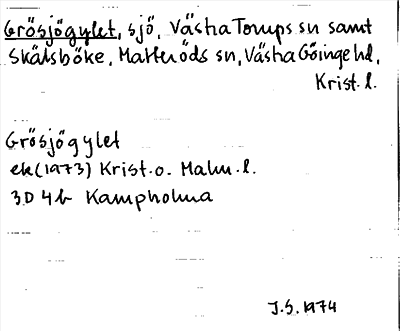 Grösjögylet, sjö, Västra Torups sn samt
Skälsböke, Matteröds sn, Västra Göinge hd,
Krist. l.
Grösjögylet
ek (1973) Krist. o. Malm. l.
3D 4b Kampholma
J.S. 1974